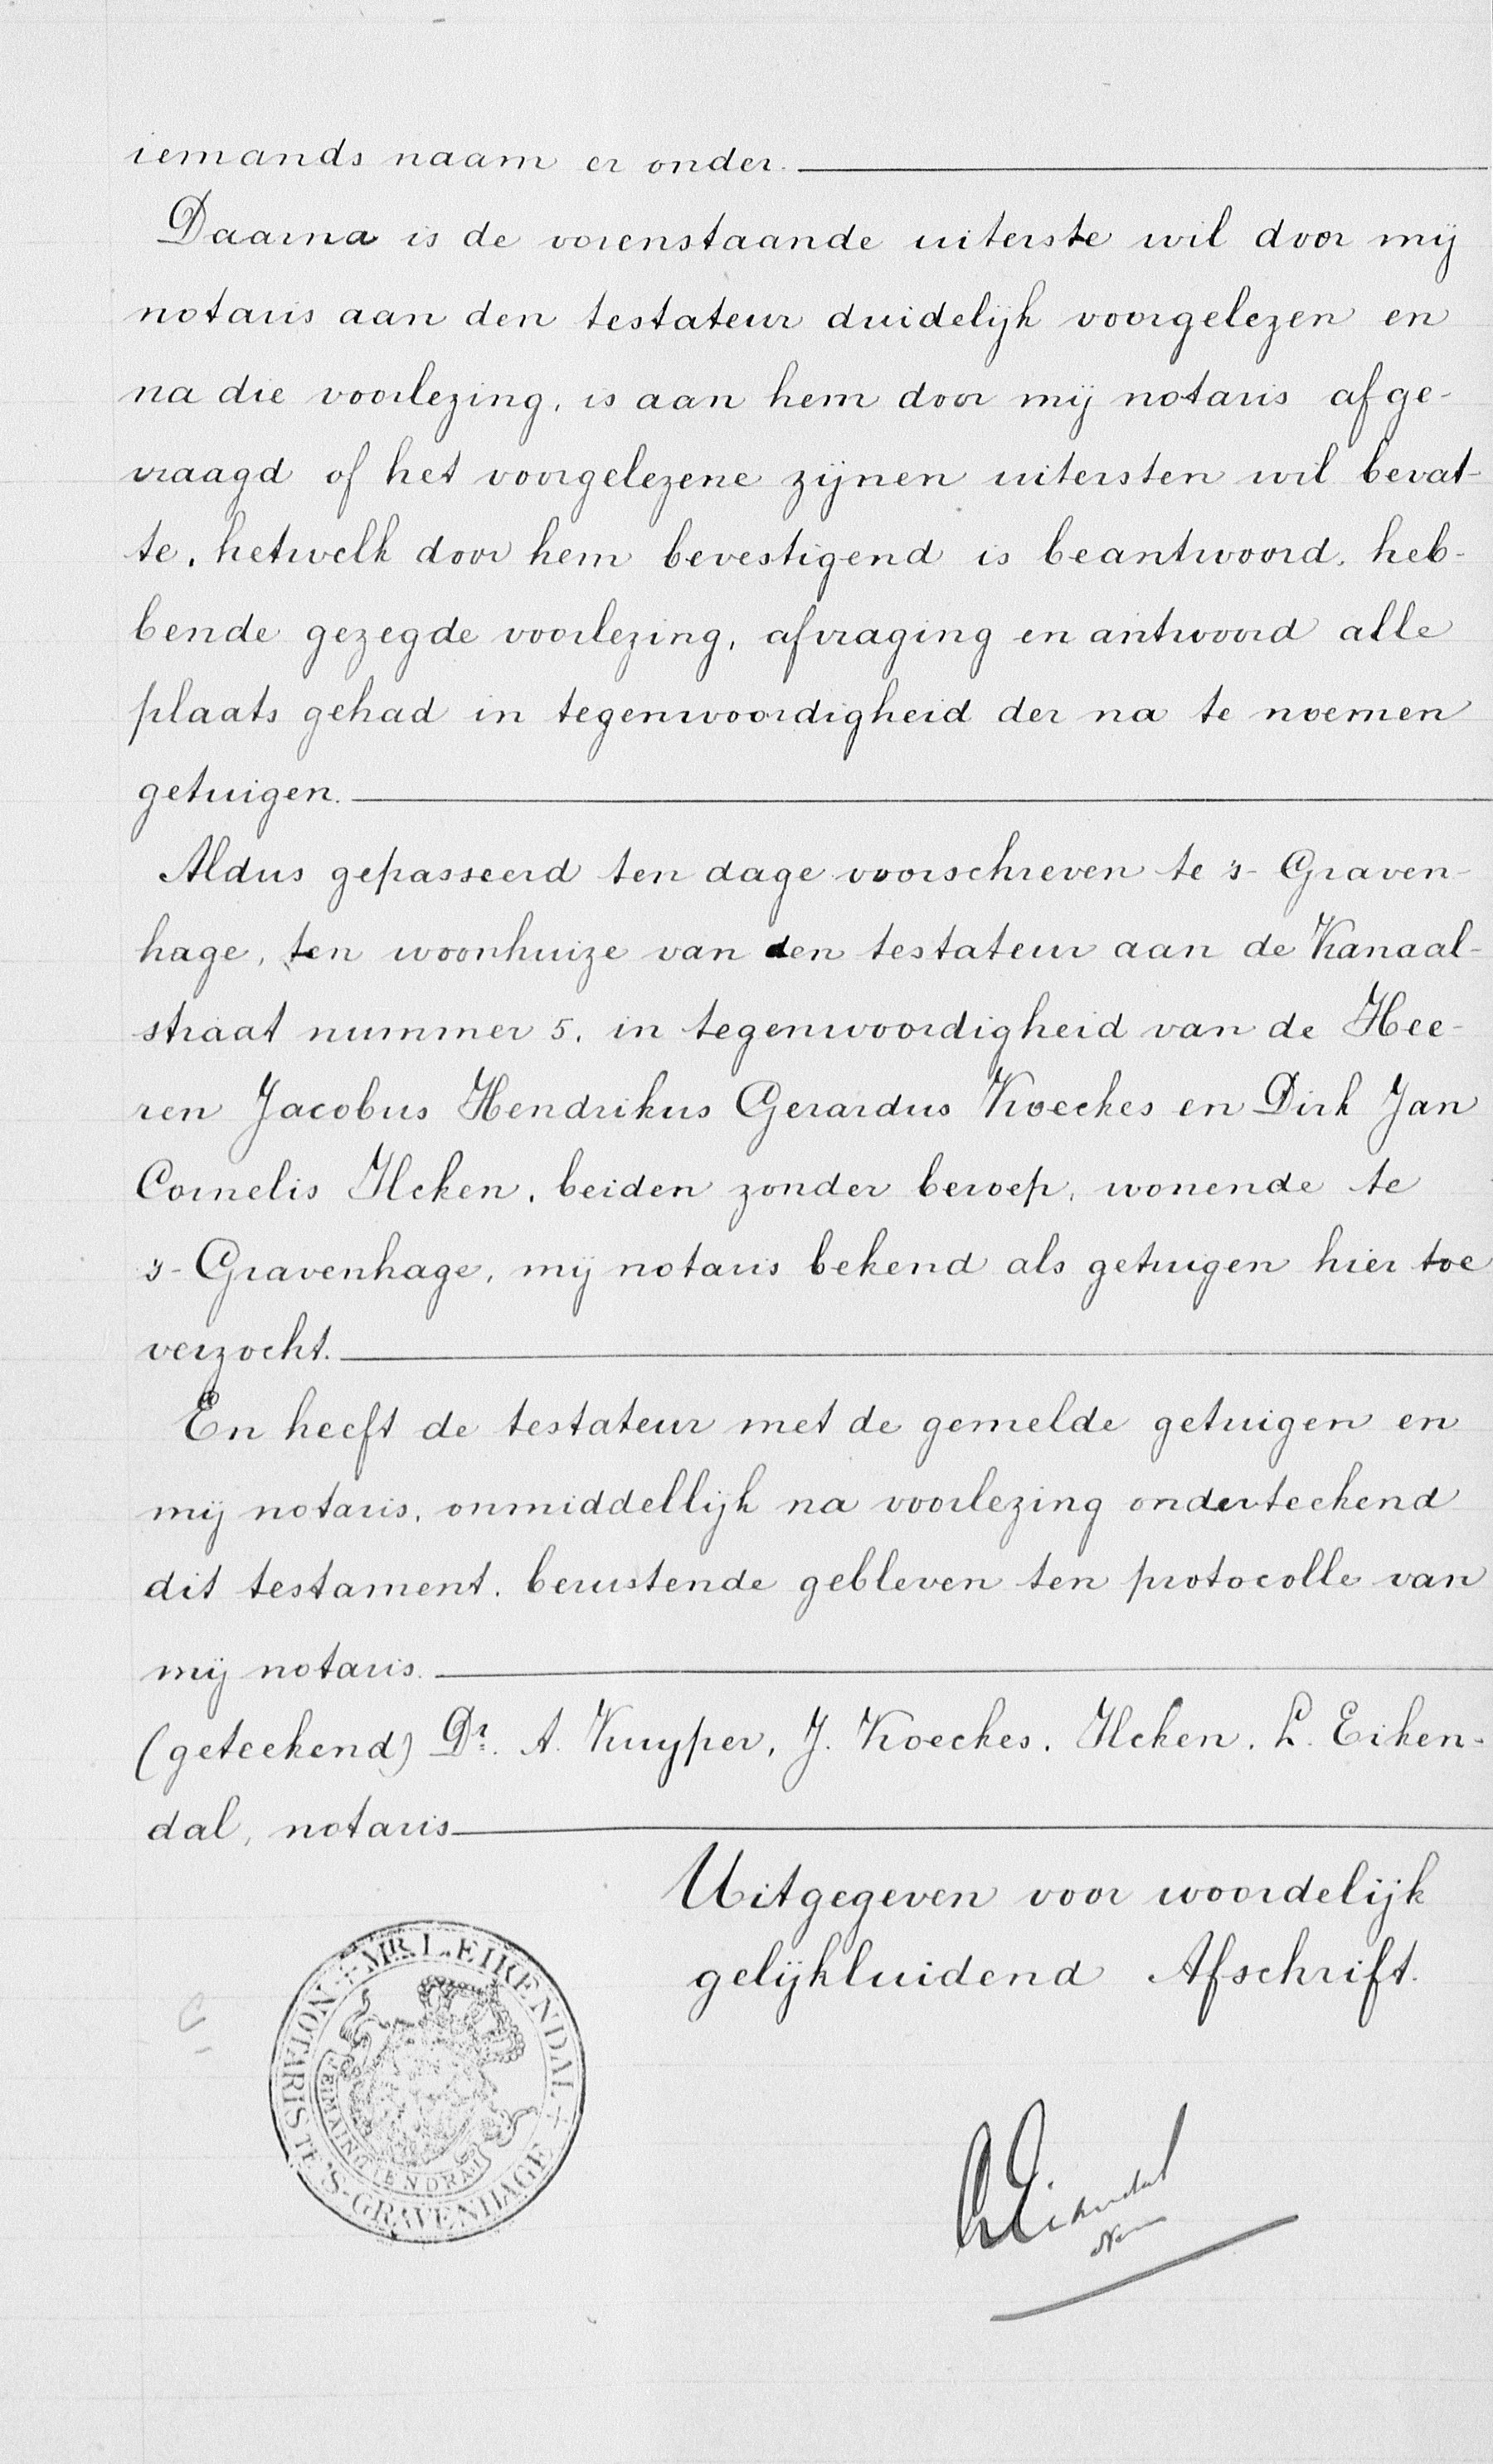 iemands naam er onder.
Daarna is de vorenstaande uiterste wil door mij
notaris aan den testateur duidelijk voorgelezen en
na die voorlezing, is aan hem door mij notaris afge-
vraagd of het voorgelezene zijnen uitersten wil bevat-
te, hetwelk door hem bevestigend is beantwoord, heb-
bende gezegde voorlezing, afvraging en antwoord alle
plaats gehad in tegenwoordigheid der na te noemen
getuigen.
Aldus gepasseerd ten dage voorschreven te 's-Graven-
hage, ten woonhuize van den testateur aan de Kanaal-
straat nummer 5, in tegenwoordigheid van de Hee-
ren Jacobus Hendrikus Gerardus Kroeckes en Dirk Jan
Cornelis Ilcken, beiden zonder beroep, wonende te
's-Gravenhage, mij notaris bekend als getuigen hier toe
verzocht.
En heeft de testateur met de gemelde getuigen en
mij notaris, onmiddellijk na voorlezing onderteekend
dit testament, berustende gebleven ten protocolle van
mij notaris.
(geteekend) Dr. A. Kuyper, J. Kroeckes, Ilcken, L. Eiken-
dal, notaris
Uitgegeven voor woordelijk
gelijkluidend Afschrift.
MR. L. EIKENDAL + NOTARIS TE 'S-GRAVENHAGE +
JE MAINTIENDRAI
LEikendal